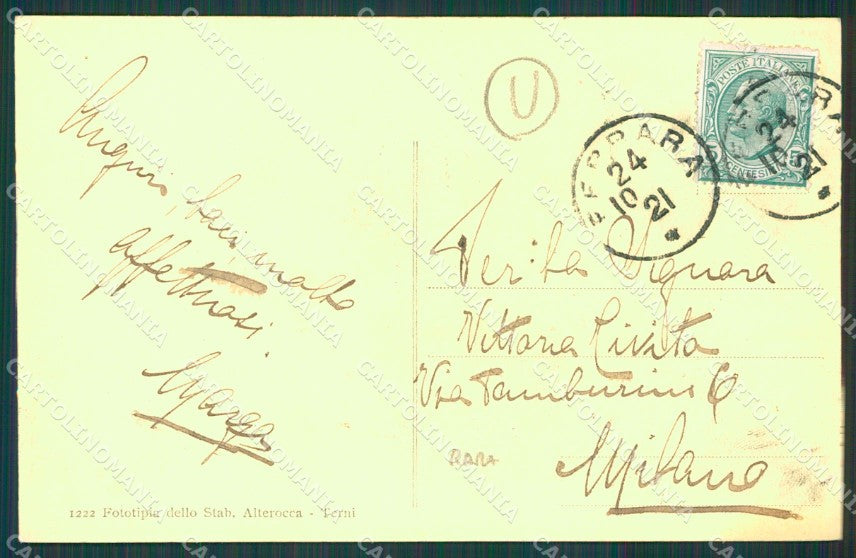 Auguri, baci, molto
affettuosi.
Marga
1222 Fototipia dello Stab. Alterocca - Terni
U
POSTE ITALIANE
CENTESIMI
FERRARA
24
10
21
24
10
21
Signora
Vittoria Civita
Via Tamburini 6
Milano
RARA
CARTOLINOMANIA